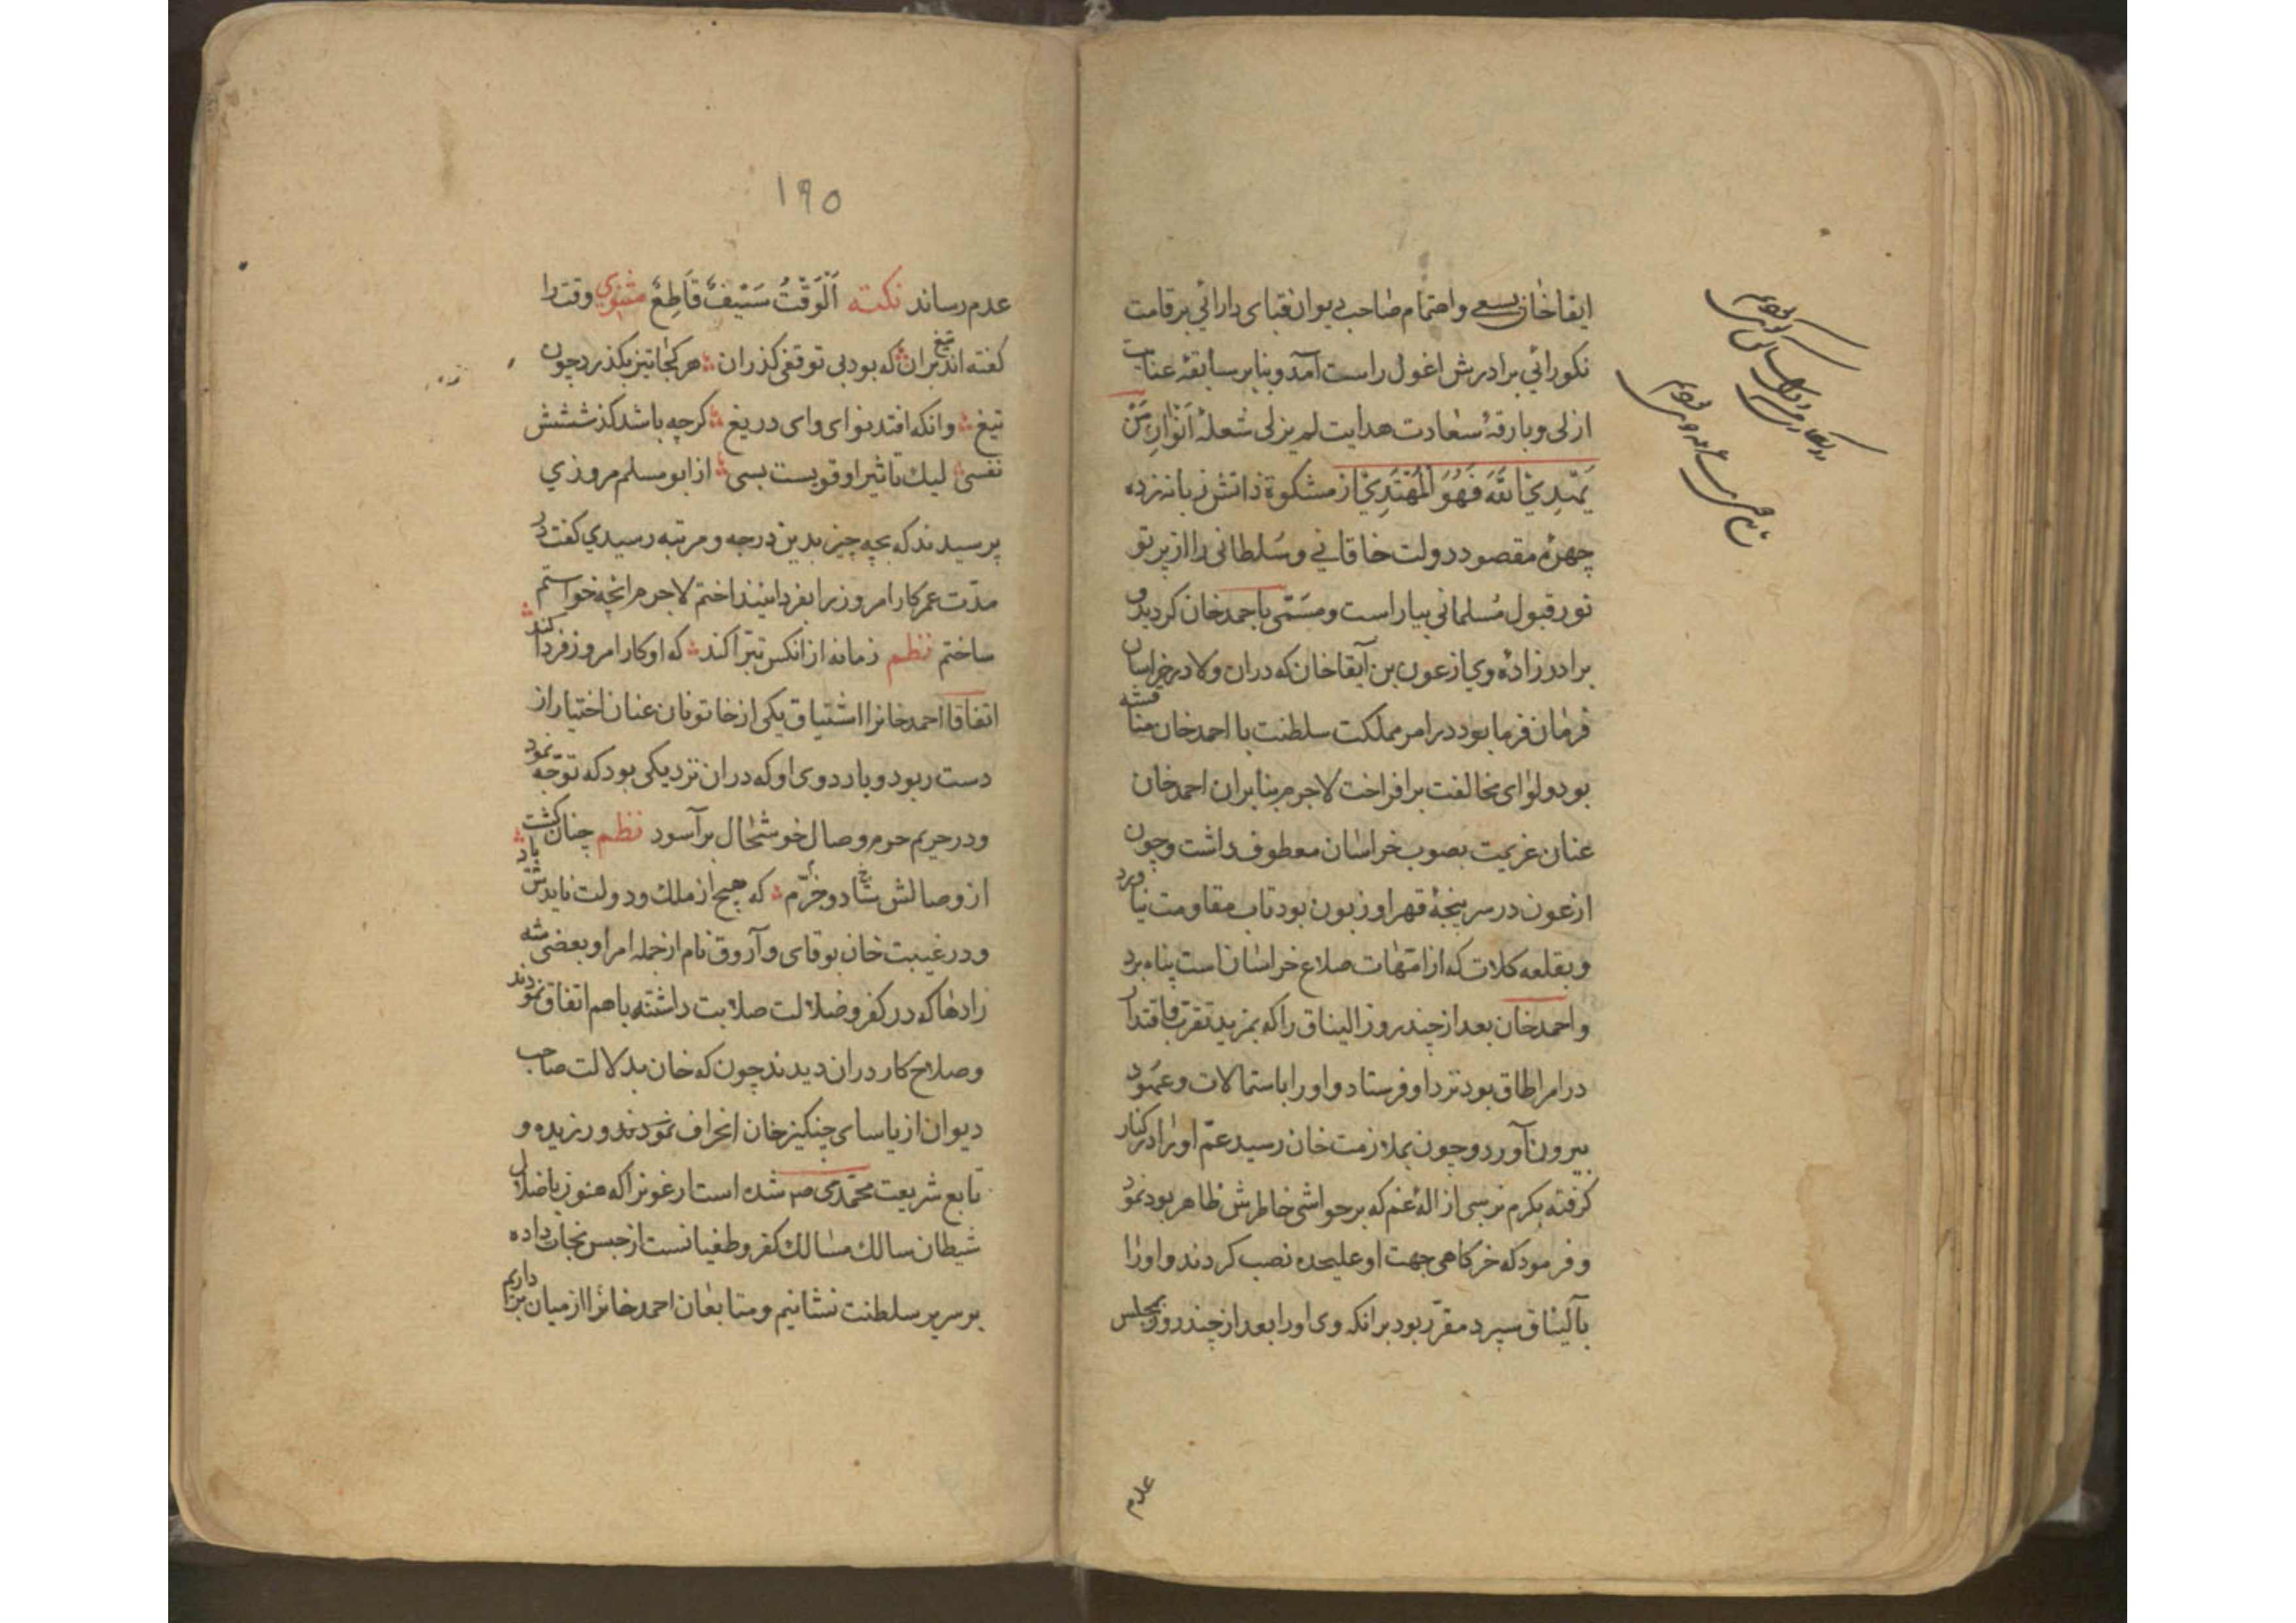 ابقاخان بسعی واهتمام صاحب دیوان قبای دارائی بر قامت
نکورائی برادرش اغول راست آمد و بنابر سابقهٔ عنایت
ازلی و بارقهٔ سعادت هدایت لم یزلی شعلهٔ اَنْوَارِ مَنْ
یَهْدِی اللّٰهَ فَهُوَ الْمُهْتَدِیْ از مشکوة ذاتش زبانه زده
چهرهٔ مقصود دولت خاقانی و سلطانی را از پرتو
نور قبول مسلمانی بیاراست و مسمّی باحمد خان کردید و
برادرزادهٔ وی ازغون بن آبقاخان که دران ولا در خراسان
فرمان فرما بود در امر مملکت سلطنت با احمد خان مناقشه
بود و لوای مخالفت برافراخت لاجرم بنابران احمد خان
عنان عزیمت بصوب خراسان معطوف داشت و چون
ازغون در سرپنجهٔ قهر او زبون بود تاب مقاومت نیاورد
و بقلعه کلات که از امّهات صلاع خراسان است پناه برد
و احمد خان بعد از چند روز الیناق را که بمزید تقرب و اقتدار
در امر اطاق بود نزد او فرستاد و او را باستمالات و عهود
بیرون آورد و چون بملازمت خان رسید عمّ او را در کنار
کرفته بکرم پرسی ازالهٔ غم که بر حواشی خاطرش ظاهر بود نمود
و فرمود که خرکاهی جهت او علیحده نصب کردند و او را
بآلیناق سپرد مقرّر بود برانکه وی او را بعد از چند روز بمجلس
عدم
۱۹۵
عدم رساند نکته اَلْوَقْتُ سَیْفٌ قَاطِعٌ مثنوی وقت را
کفته اند تیغ بران که بود بی توقفی کذران هر کجا تیز بکذرد چون
تیغ وانکه افتد بنوای وای دریغ کرچه باشد کذششش
نفسی لیک تاثیر او قویست بسی از ابو مسلم مروزی
پرسیدند که بچه چیز بدین درجه و مرتبه رسیدی کفت در
مدّت عمر کار امروز را بفردا نینداختم لاجرم انچه خواستم
ساختم نظم زمانه از انکس تبرّا کند که او کار امروز فردا کند
اتفاقا احمد خانرا اشتیاق یکی از خاتونان عنان اختیار از
دست ربود و باردوی او که دران نزدیکی بود که توجّه نمود
و در حریم حرم وصال خوشحال برآسود نظم چنان کشت
از وصالش شاد و خرّم که هیچ از ملک و دولت نایدش یاد
و در غیبت خان بوقای و آروق نام از جمله امرا و بعضی شه
زادها که در کفر و ضلالت صلابت داشته باهم اتفاق نمودند
و صلاح کار دران دیدند چون که خان بدلالت صاحب
دیوان از یاسای چنکیز خان انحراف نمودند و ورزیده و
تابع شریعت محمّدی صم شده است ارغونرا که هنوز باضلال
شیطان سالک مسالک کفر و طغیانست از حبس نجات داده
بر سریر سلطنت نشانیم و متابعان احمد خانرا از میان برداریم